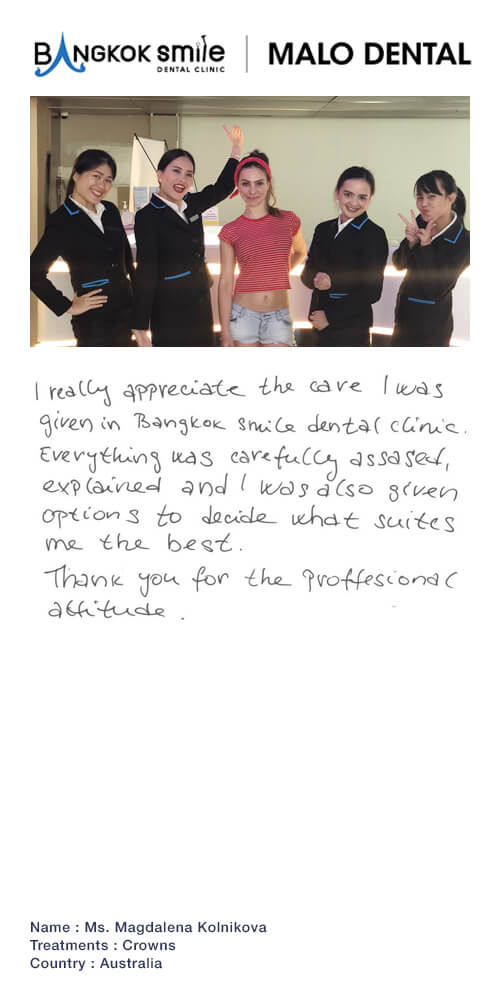 BANGKOK smile
DENTAL CLINIC
MALO DENTAL
I really appreciate the care I was
given in Bangkok smile dental clinic.
Everything was carefully assased,
explained and I was also given
options to decide what suites
me the best.
Thank you for the proffesional
attitude.
Name : Ms. Magdalena Kolnikova
Treatments : Crowns
Country : Australia